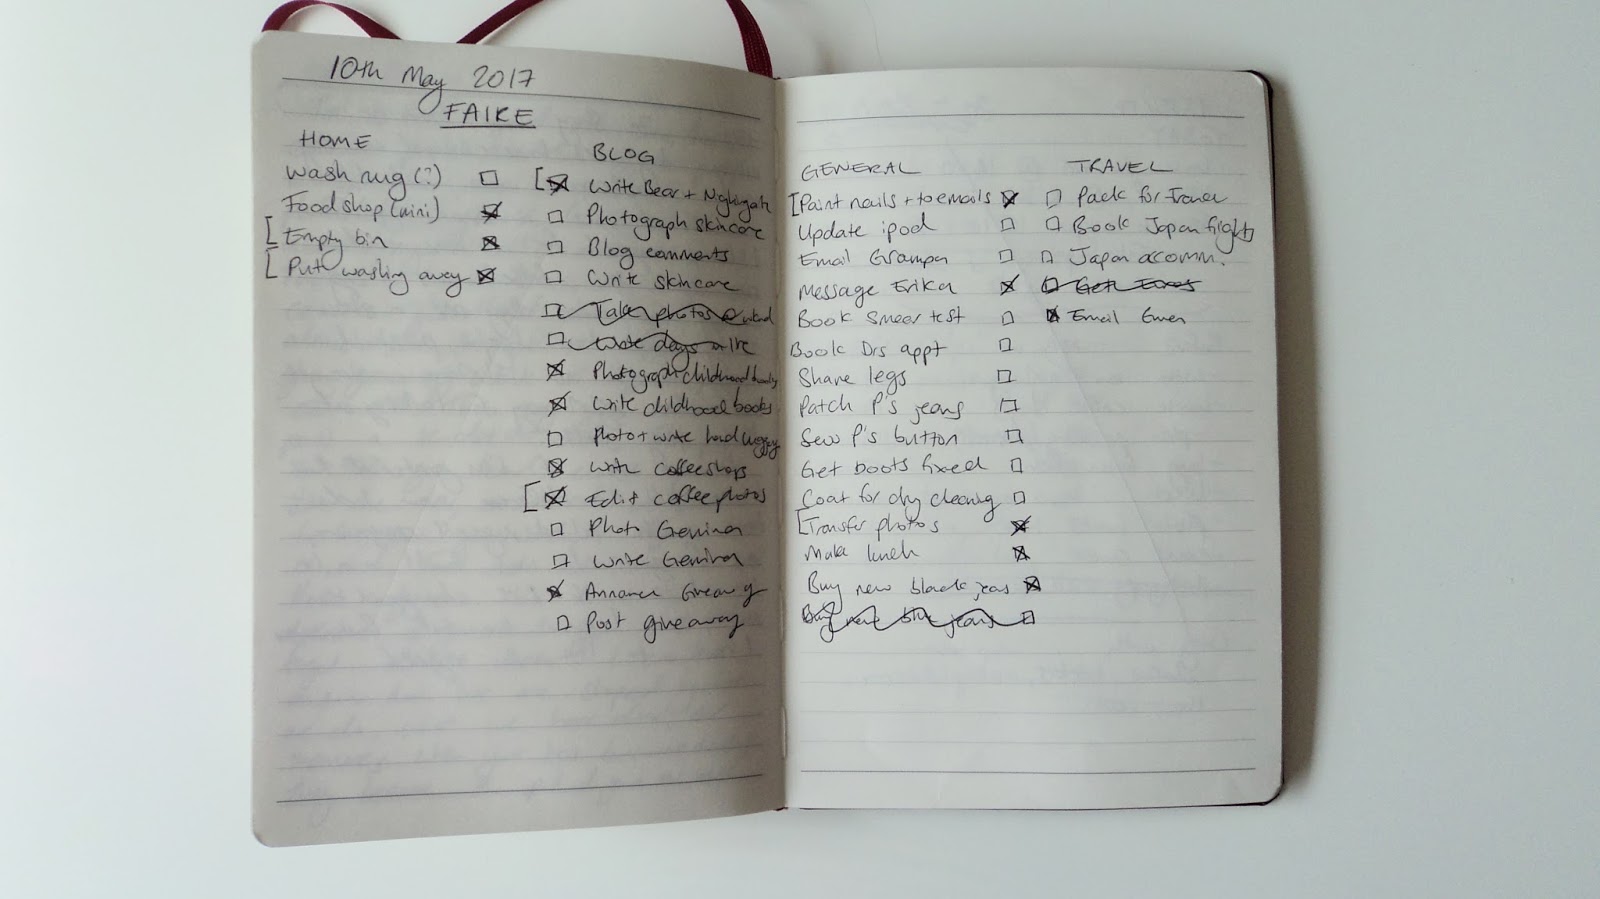 10th May 2017
FAIRE
HOME
Wash rug (?)
Food shop (mini)
Empty bin
Put washing away
BLOG
Write Bear + Nightingale
Photograph skincare
Blog comments
Write skincare
Take photos
Write days
Photograph childhood books
Write childhood books
Photo + write hand luggage
Write coffee shops
Edit coffee photos
Photo Gemina
Write Gemina
Announce Giveaway
Post giveaway
GENERAL
Paint nails + to emails
Update ipod
Email Grampa
Message Erika
Book Smear test
Book Drs appt
Shave legs
Patch P's jeans
Sew P's button
Get boots fixed
Coat for dry cleaning
Transfer photos
Make lunch
Buy new black jeans
Buy new blue jeans
TRAVEL
Pack for France
Book Japan flights
Japan accomm.
Get Euros
Email